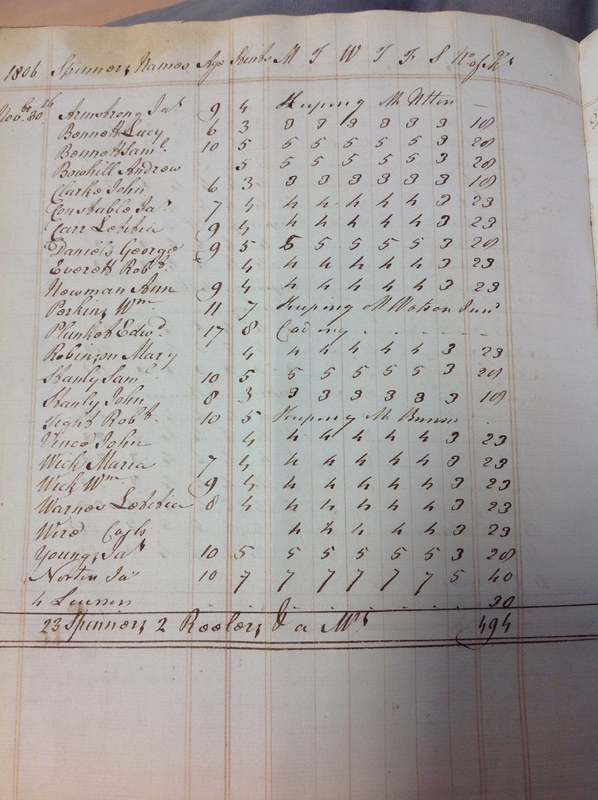 1806 Spinners Names Age Stents M T W T F S No of Ks
Novbr 30th Armstrong Jas 9 4 Keeping Mr Utten —
Bennett Lucy 6 3 3 3 3 3 3 3 18
Bennett Saml 10 5 5 5 5 5 5 3 28
Bowhill Andrew 5 5 5 5 5 5 3 28
Clarke John 6 3 3 3 3 3 3 3 18
Constable Jas 7 4 4 4 4 4 4 3 23
Carr Letitia 9 4 4 4 4 4 4 3 23
Daniels George 9 5 5 5 5 5 5 3 28
Everett Robt 4 4 4 4 4 4 3 23
Newman Ann 9 4 4 4 4 4 4 3 23
Perkins Wm 11 7 Keeping Mr Watson Junr
Plunket Edwd 17 8
Robinson Mary 4 4 4 4 4 4 3 23
Stanly Saml 10 5 5 5 5 5 5 3 28
Stanly John 8 3 3 3 3 3 3 3 18
Robt 10 5 Keeping Mr
Vince John 4 4 4 4 4 4 3 23
Wick Maria 7 4 4 4 4 4 4 3 23
Wick Wm 9 4 4 4 4 4 4 3 23
Warnes Letitia 8 4 4 4 4 4 4 3 23
4 4 4 4 4 3 23
Youngs Jas 10 5 5 5 5 5 5 3 28
Norton Jas 10 7 7 7 7 7 7 5 40
4 30
23 Spinners 2 Reelers & a Mr 494